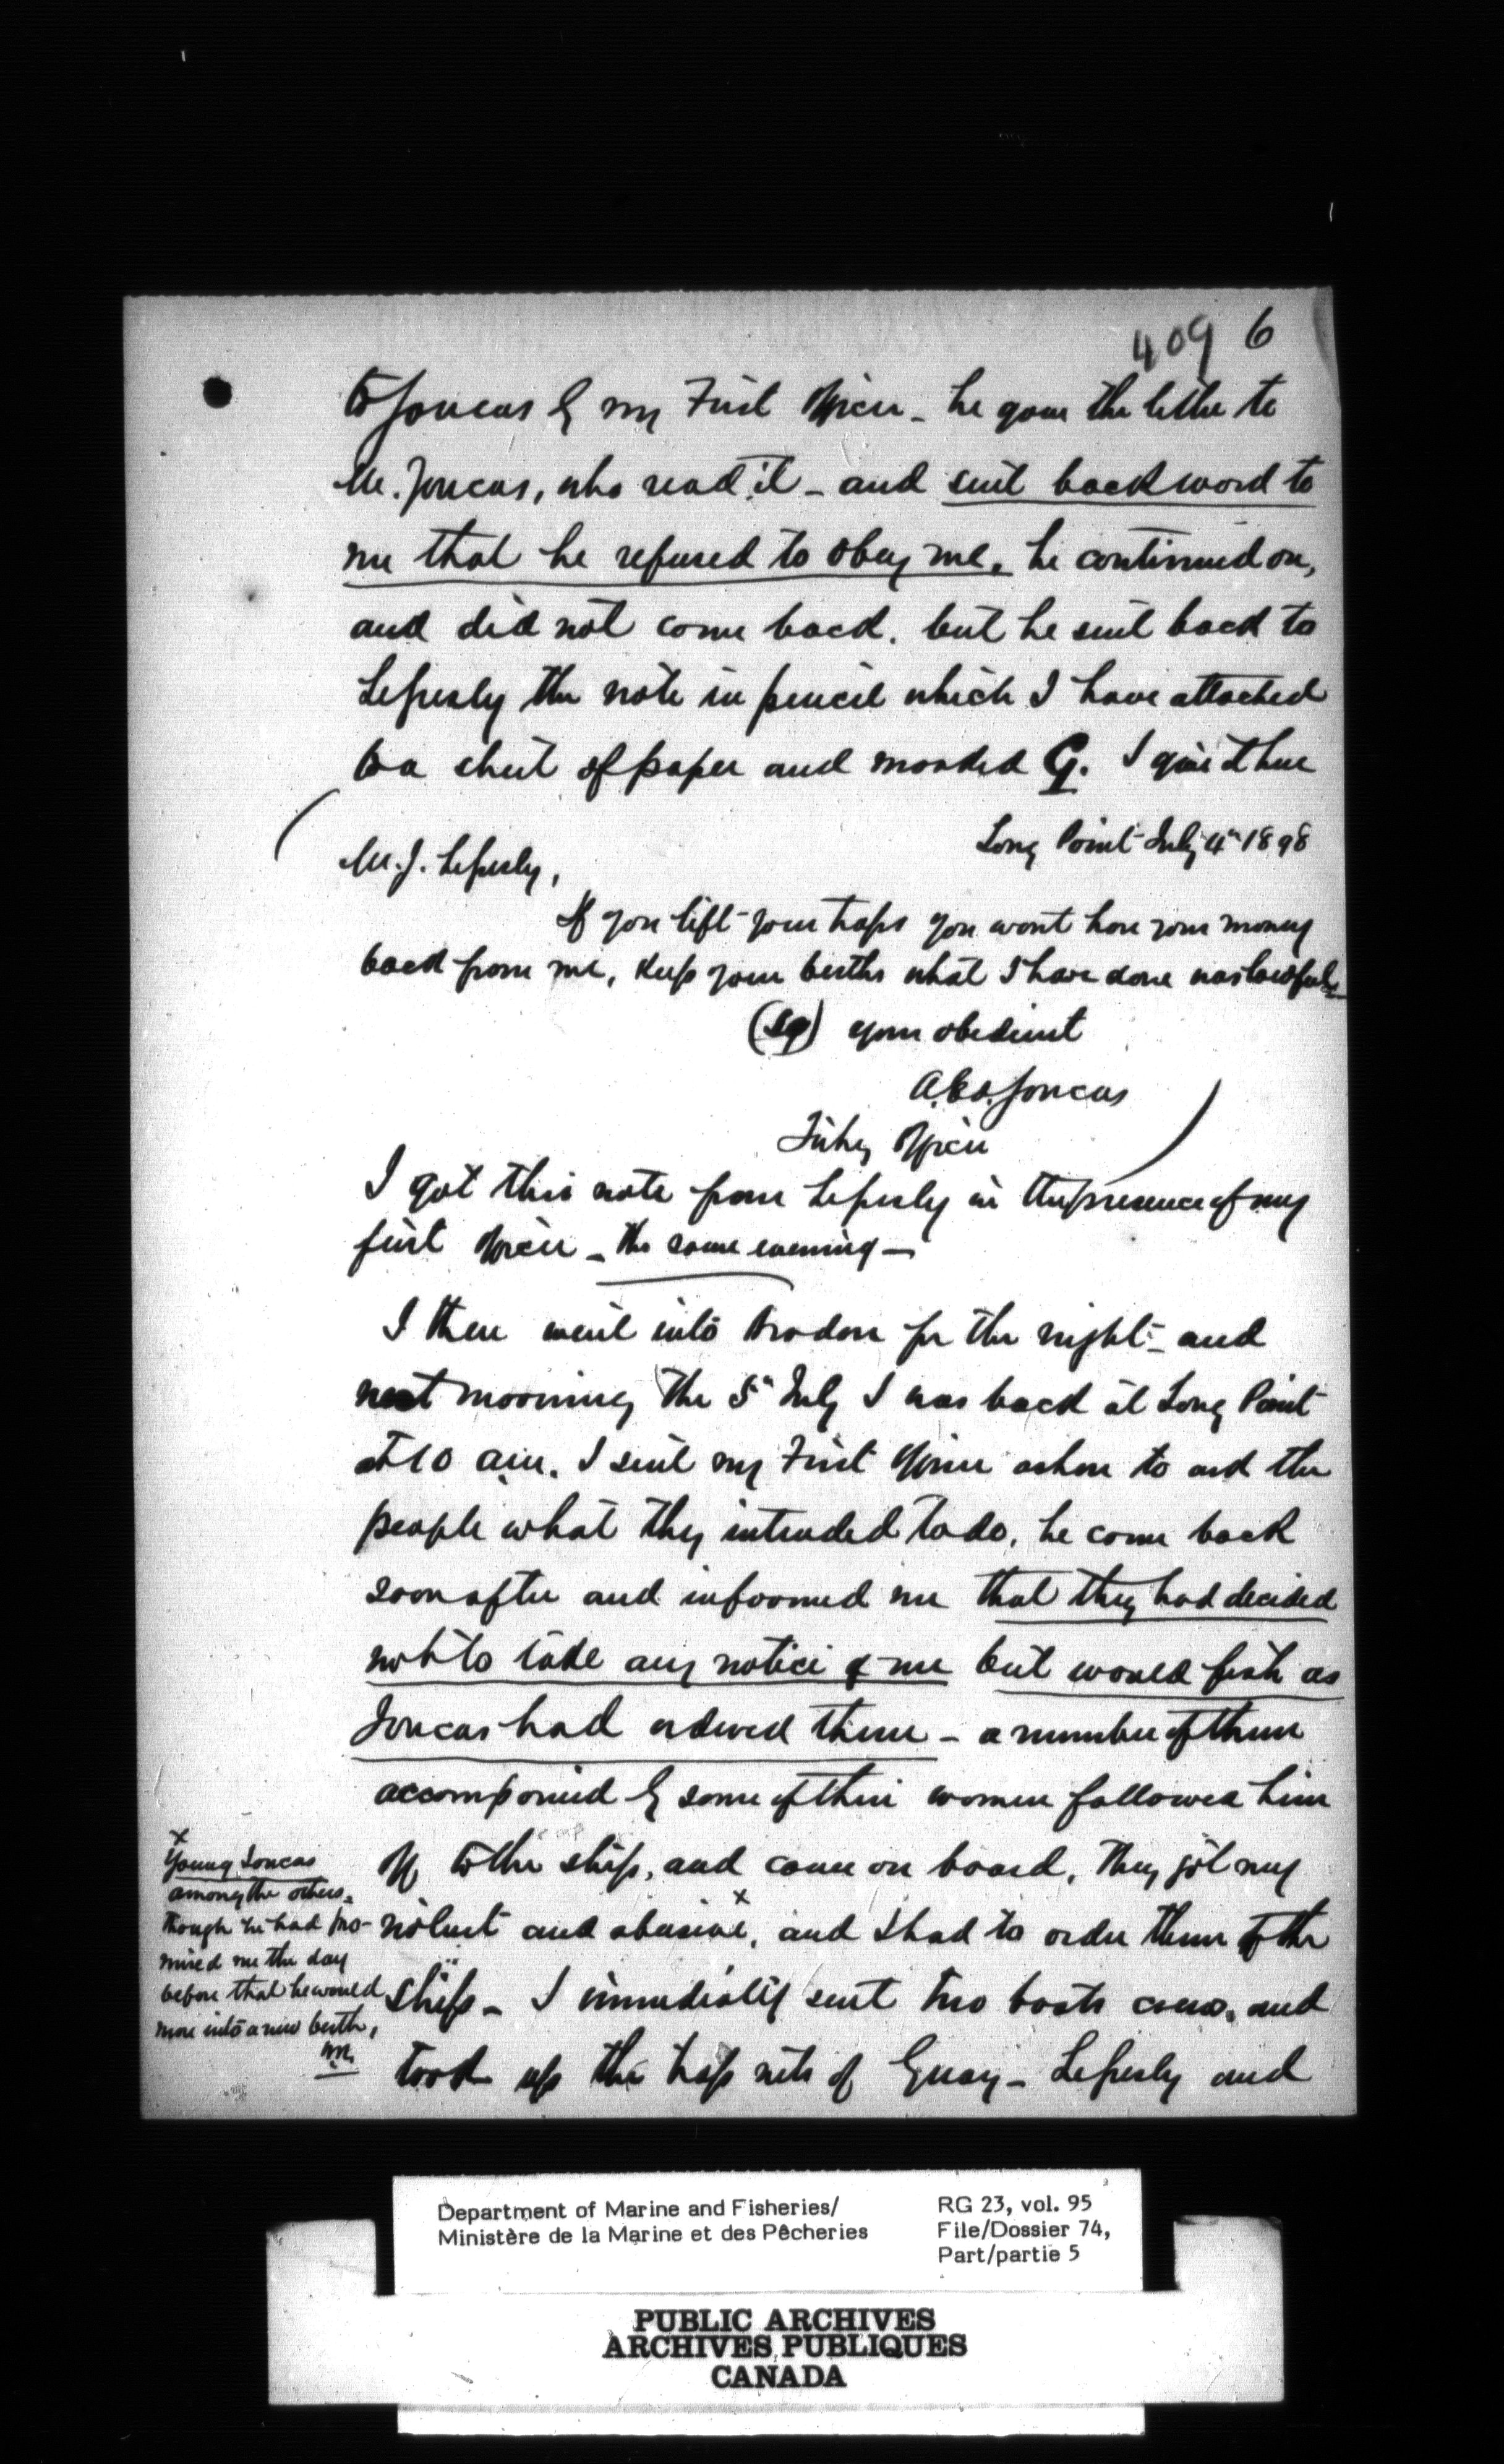 409 6
to Joncas by my First Officer - he gave the letter to
Mr. Joncas, who read it - and sent back word to
me that he refused to obey me. he continued on,
and did not come back. but he sent back to
the note in pencil which I have attached
to a sheet of paper and marked G. I give it here
Long Point July 4th 1898
Mr. J.
If you lift your traps you wont have your money
back from me, Keep your berths what I have done was lawful
(Sg) your obedient
Joncas
Fishy Officer
I got this note from in the presence of my
first Officer - the same evening -
I then went into for the night - and
next morning the 5th July I was back at Long Point
at 10 am. I sent my First Officer ashore to ask the
people what they intended to do. he came back
soon after and informed me that they had decided
not to take any notice of me but would fish as
Joncas had ordered them - a number of them
accompanied by some of their women followed him
off to the ship, and came on board, They got very
violent and abusive x, and I had to order them off the
ship - I immediately sent two boats crews, and
took up the trap nets of - and
x
Young Joncas
among the others.
though he had pro-
mised me the day
before that he would
move into a new berth,
Department of Marine and Fisheries/
Ministère de la Marine et des Pêcheries
RG 23, vol. 95
File/Dossier 74,
Part/partie 5
PUBLIC ARCHIVES
ARCHIVES PUBLIQUES
CANADA